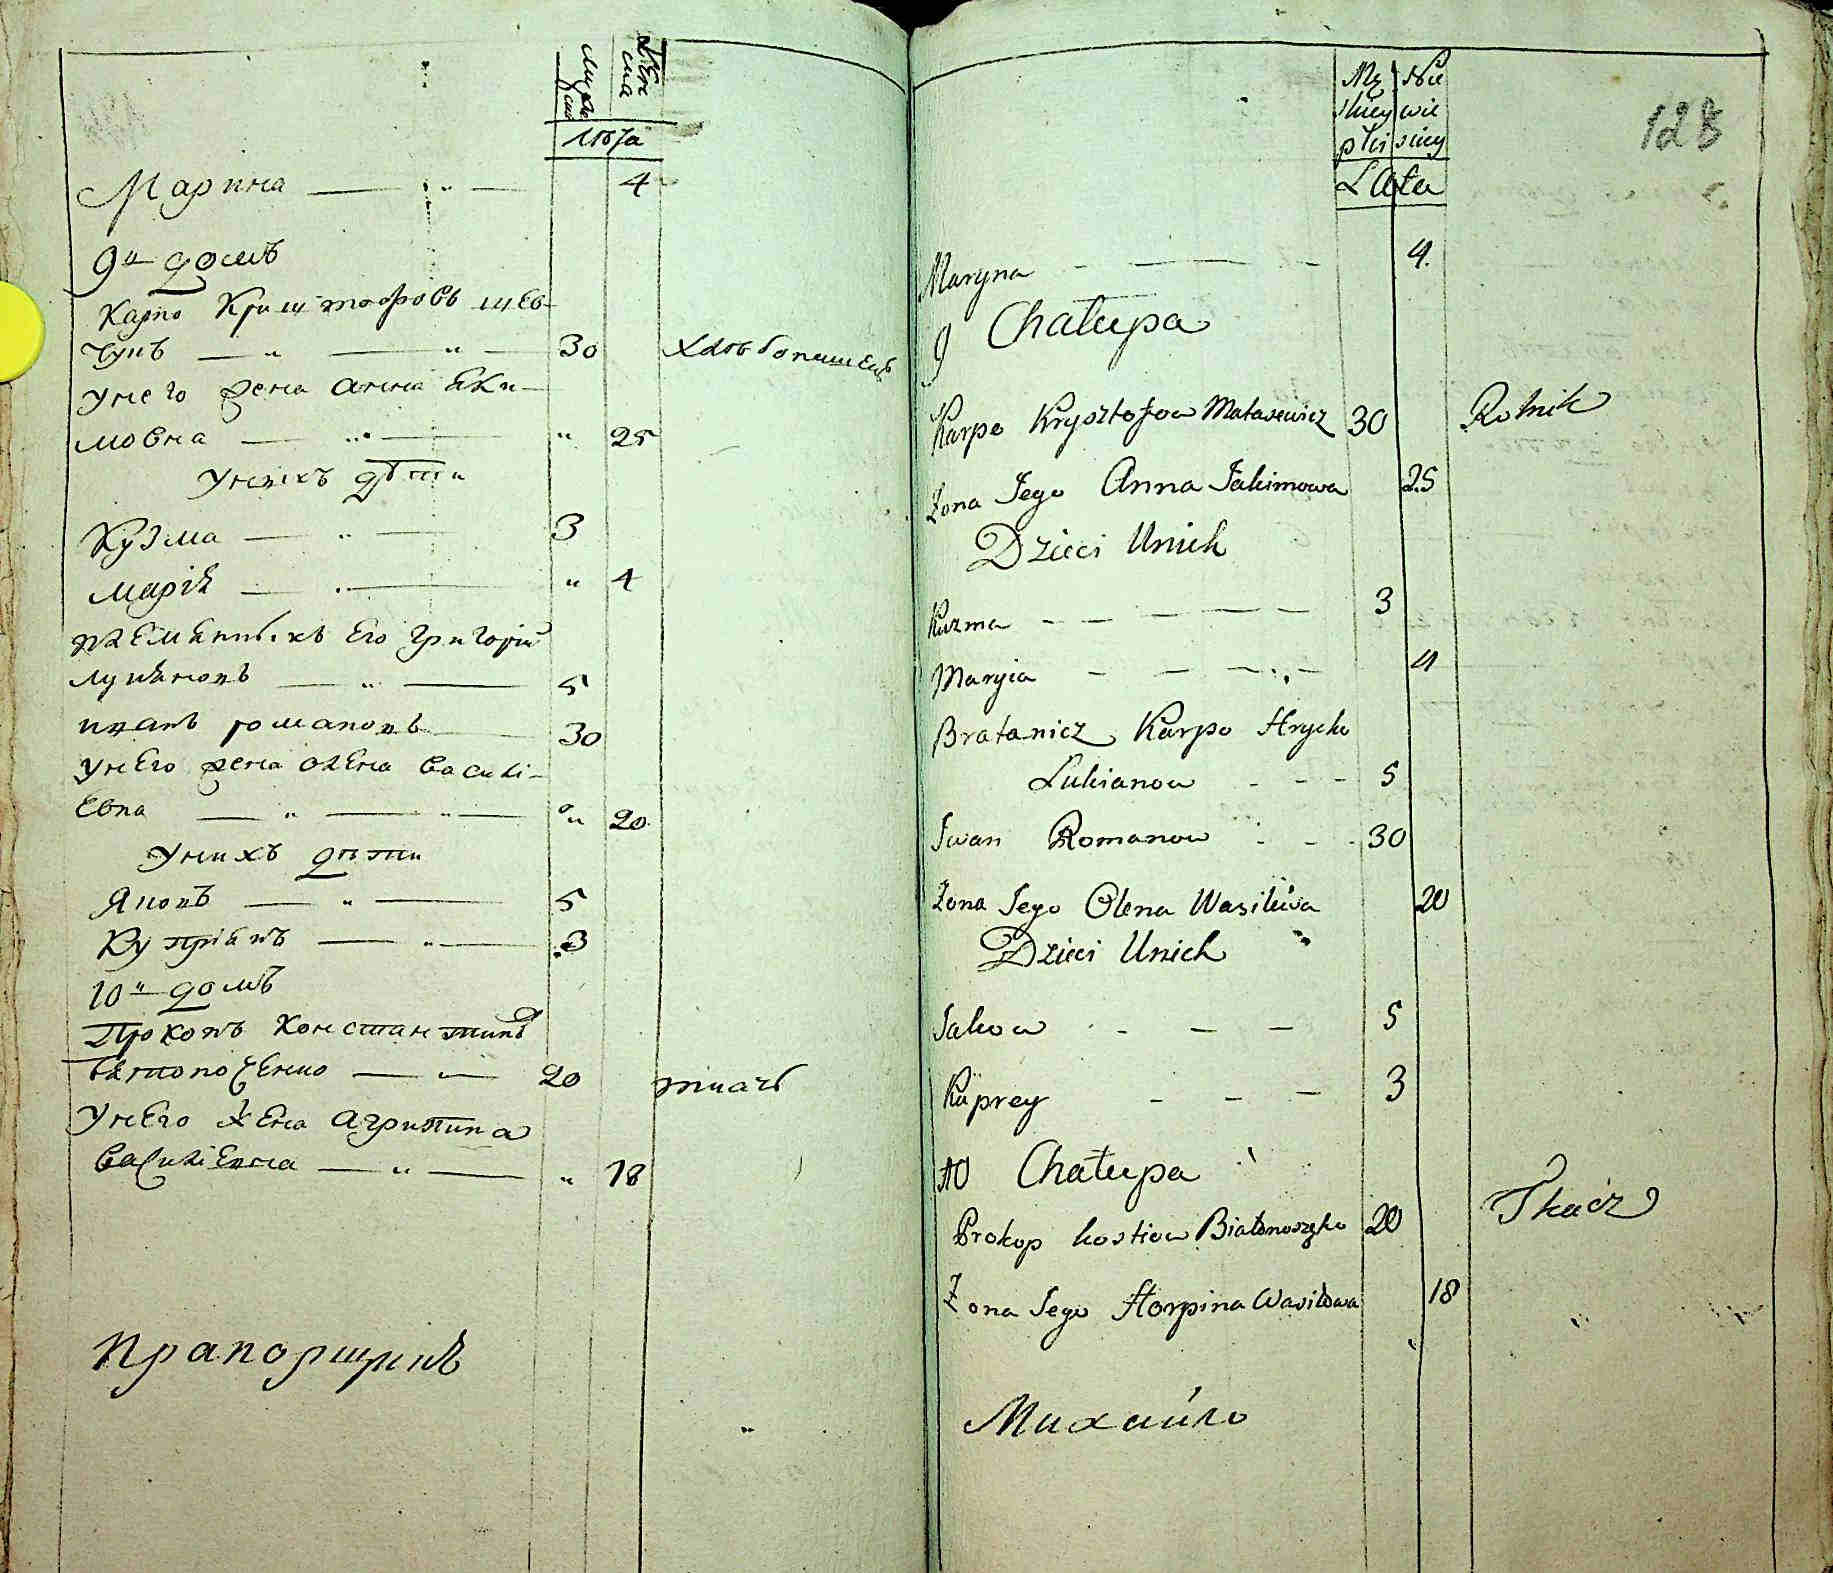 мужескъ
Женска
лѣта
Марина 4
9й домъ
Карпо Криштофовъ шев-
чукъ 30 хлѣбопашецъ
у него жена анна яки-
мовна " 25
У нихъ дѣти
Кузма 3
марія " 4
племянникъ его григорій
лукяновъ 5
иванъ романовъ 30
у него жена олена василі-
евна " 20
У нихъ дѣти
Яковъ 5
Купріянъ 3
10й домъ
Прокопъ Константиновъ
бѣлоноженко 20 ткачъ
У него жена агрипина
василіевна " 18
Прапорщикъ
Mę Nie
skiey wie
płci sciey
Lata
128
Maryna 4
9 Chałupa
Karpo Krysztofow Matasewicz 30 Rolnik
Żona Jego Anna Jakimowa 25
Dzieci Unich
Kuzma 3
Maryia 4
Bratanicz Karpo Hryćko
Lukianow 5
Iwan Romanow 30
Żona Jego Olena Wasilewa 20
Dzieci Unich
Jakow 5
Kuprey 3
10 Chałupa
Prokop Kostiow Białonoszyko 20 Tkacz
Żona Jego Horpina Wasilowa 18
Михайло